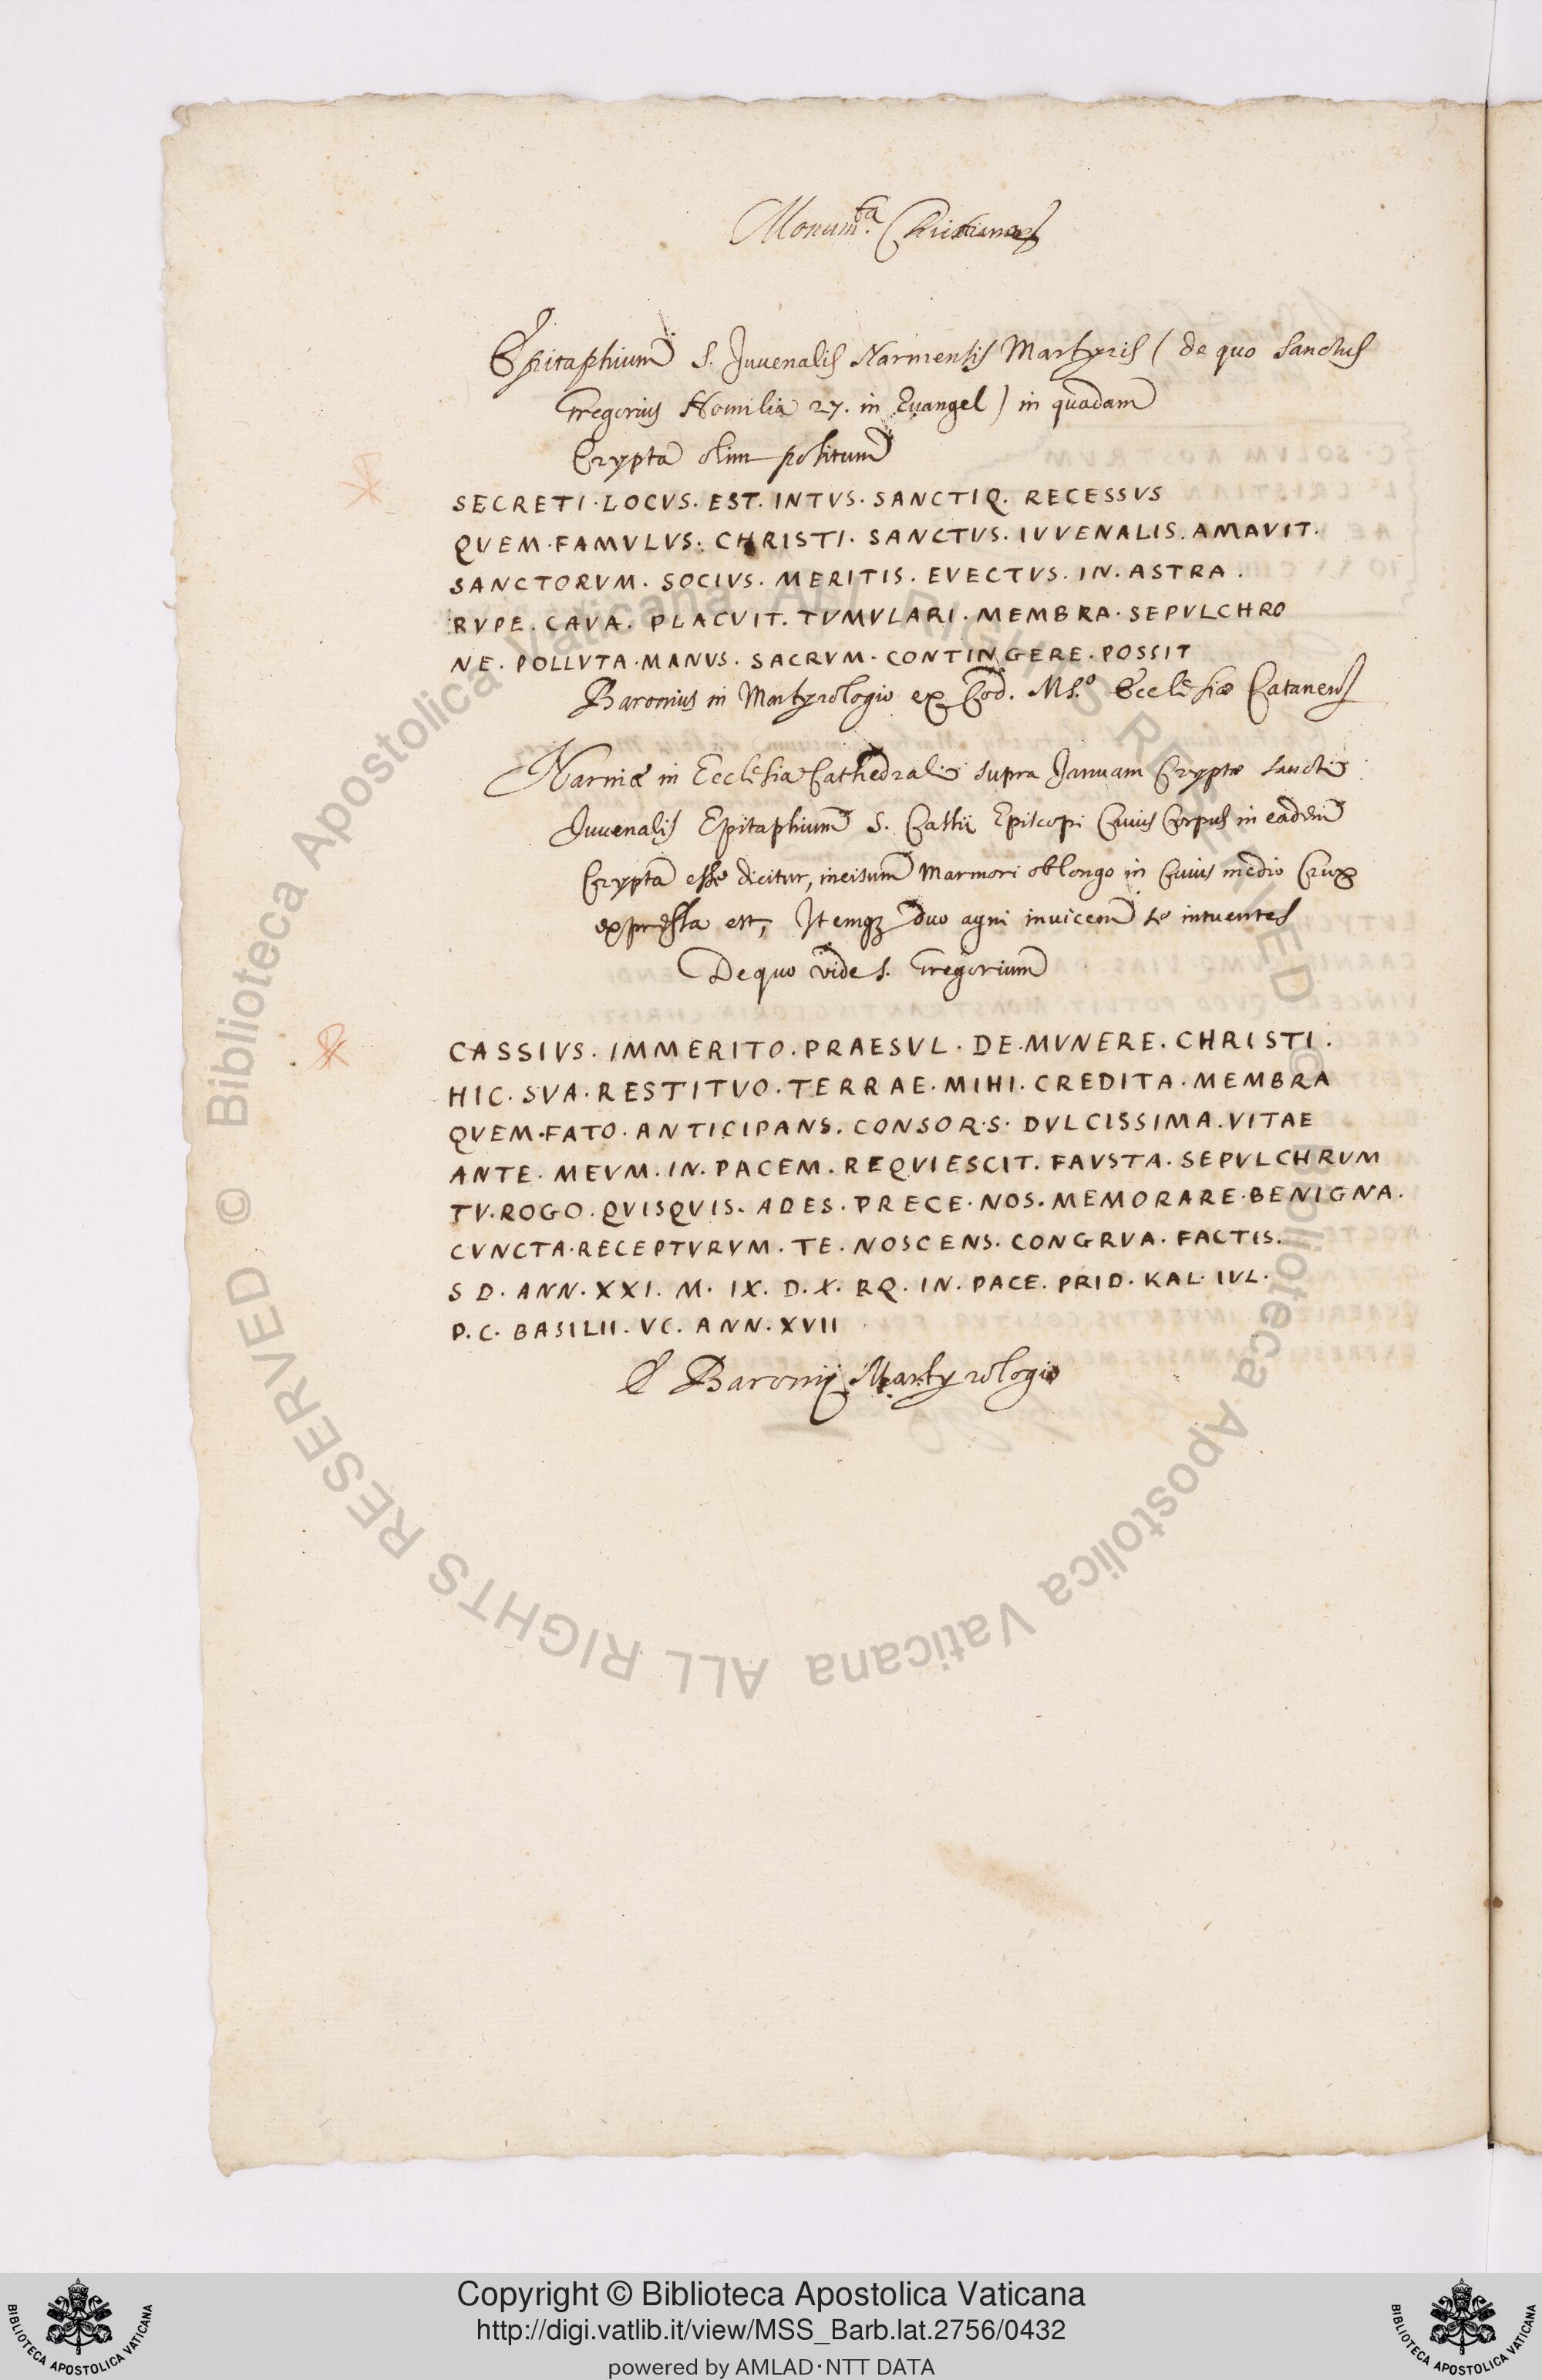 Monum.ta Christiana
Epitaphium S. Juuenalis Narniensis Martyris ( de quo sanctus
Gregorius Homilia 27. in Euangel ) in quadam
Crypta olim positum
SECRETI · LOCVS . EST. INTVS · SANCTIQ. RECESSVS
QVEM · FAMVLVS: CHRISTI · SANCTVS . IVVENALIS . AMAVIT.
SANCTORVM . SOCIVS . MERITIS . EVECTVS . IN . ASTRA .
RVPE . CAVA . PLACVIT. TVMVLARI . MEMBRA · SEPVLCHRO
NE . POLLVTA · MANVS . SACRVM · CONTINGERE . POSSIT
Baronius in Martyrologio ex Cod. Ms.o Ecclesiæ Catanens
Narniæ in Ecclesia Cathedrali supra Januam Cryptæ sancti
Juuenalis Epitaphium S. Cassii Episcopi Cuius Corpus in eadem
Crypta esse dicitur, incisum Marmori oblongo in Cuius medio Crux
expressa est, Itemq; duo agni inuicem se intuentes
De quo vide S. Gregorium
CASSIVS . IMMERITO . PRAESVL . DE · MVNERE . CHRISTI .
HIC . SVA . RESTITVO . TERRAE . MIHI . CREDITA . MEMBRA
QVEM · FATO . ANTICIPANS . CONSOR·S· DVLCISSIMA . VITAE
ANTE . MEVM . IN . PACEM . REQVIESCIT . FAVSTA . SEPVLCHRVM
TV · ROGO . QVISQVIS . ADES . PRECE · NOS . MEMORARE · BENIGNA .
CVNCTA · RECEPTVRVM . TE . NOSCENS . CONGRVA . FACTIS .
S D . ANN . XXI . M . IX . D . X . RQ . IN . PACE . PRID . KAL . IVL .
P. C. BASILII . VC . ANN . XVII
E Baronij Martyrologio
© Biblioteca Apostolica Vaticana ALL RIGHTS RESERVED © Biblioteca Apostolica Vaticana ALL RIGHTS RESERVED
Copyright © Biblioteca Apostolica Vaticana
http://digi.vatlib.it/view/MSS_Barb.lat.2756/0432
powered by AMLAD·NTT DATA
BIBLIOTECA APOSTOLICA VATICANA
BIBLIOTECA APOSTOLICA VATICANA